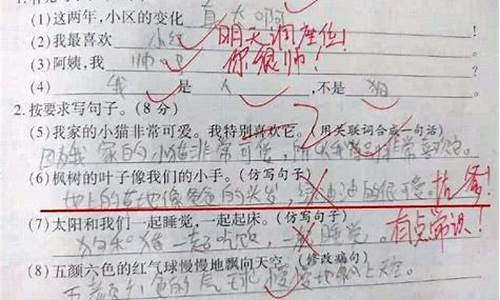 (1)这两年,小区的变化 真大啊
(2)我最喜欢 小红 明天调座位!
(3)阿姨,我 帅吧 你很帅!
(4) 我 是 人 ,不是 狗
2.按要求写句子。(8分)
(5)我家的小猫非常可爱。我特别喜欢它。(用关联词合成一句话)
因为我家的小猫非常可爱,所以我非常喜欢它。
(6)枫树的叶子像我们的小手。(仿写句子)
地上的草地像爸爸的头发,绿油油的很可爱。
(7)太阳和我们一起睡觉,一起起床。(仿写句子) 有点常识!
狗和猫一起吃饭,一起睡觉。
(8)五颜六色的红气球慢慢地飘向天空。(修改病句)
五颜六色的气球慢慢地飘上天空。